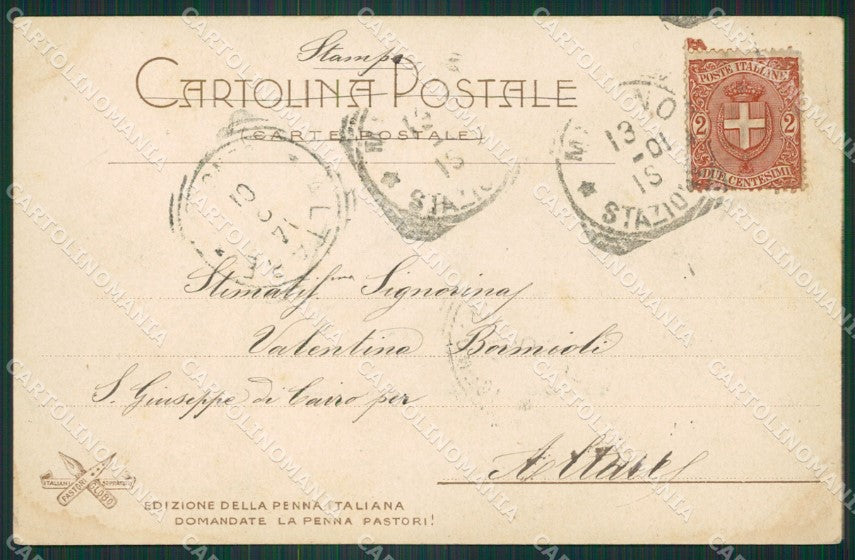 Stampe
CARTOLINA POSTALE
(CARTE POSTALE)
POSTE ITALIANE
2 2
DUE CENTESIMI
13
15
STAZIO
NO
13
01
15
STAZION
Stimatissma Signorina
Valentina Bormioli
S. Giuseppe di Cairo per
Altare
ITALIANI
PASTORI
GLOBO
EDIZIONE DELLA PENNA ITALIANA
DOMANDATE LA PENNA PASTORI!
CARTOLINOMANIA